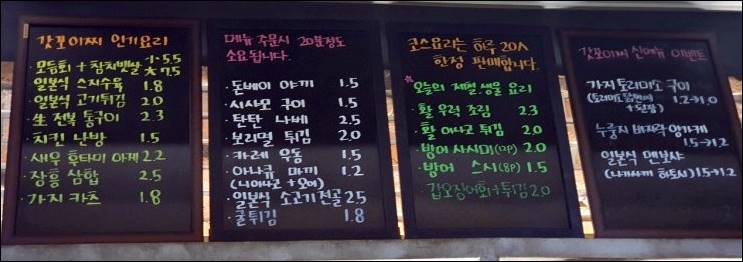 갓꼬아찌 인기요리
모듬회 + 참치뱃살 小 5.5
大 7.5
일본식 스지수육 1.8
일본식 고기튀김 2.0
生 전복 통구이 2.3
치킨 난방 1.5
새우 후타미 아게 2.2
장흥 삼합 2.5
가지 카츠 1.8
메뉴 주문시 20분정도
소요됩니다.
돈베이 야끼 1.5
시샤모 구이 1.5
탄탄 나베 2.5
보리멸 튀김 2.0
카레 우동 1.5
아나큐 마끼 1.2
(니아나고 + 오이)
일본식 소고기 전골 2.5
굴튀김 1.8
코스요리는 하루 20人
한정 판매합니다.
오늘의 제철, 생물 요리
활 우럭 조림 2.3
활 아나고 튀김 2.0
방어 사시미(12P) 2.0
방어 스시(8P) 1.5
갑오징어회+튀김 2.0
갓꼬아찌 신메뉴 이벤트
가지 토리미소 구이
1.2→1.0
누룽지 바지락 앙카케
1.5→1.2
일본식 멘보샤
(나가사끼 하토시) 1.5→1.2